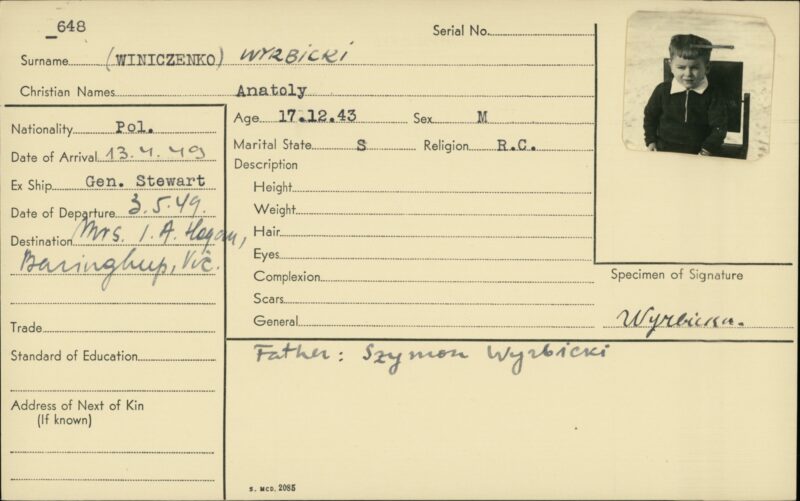 648
Serial No.
Surname (WINICZENKO) WYRBICKI
Christian Names Anatoly
Age 17.12.43 Sex M
Nationality Pol.
Marital State S Religion R.C.
Date of Arrival 13.4.49
Description
Ex Ship Gen. Stewart
Height
Date of Departure 3.5.49.
Weight
Destination Mrs. I. A. Hogan,
Hair
Baringhup, Vic.
Eyes
Complexion
Specimen of Signature
Scars
General
Wyrbicka.
Trade
Standard of Education
Father: Szymon Wyrbicki
Address of Next of Kin
(If known)
S. MCD. 2085